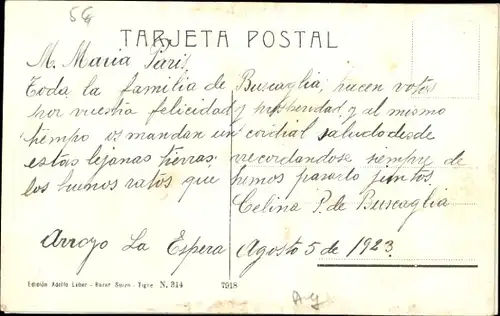 56
TARJETA POSTAL
M. Maria Paris.
Toda la familia de Buscaglia, hacen votos
por vuestra felicidad y prosperidad y al mismo
tiempo os mandan un cordial saludo desde
estas lejanas tierras recordandose siempre de
los buenos ratos que hemos pasado juntos.
Celina P. de Buscaglia
Arroyo La Espera Agosto 5 de 1923.
Edición Adolfo Leber - Bazar Suizo - Tigre N. 314 7918